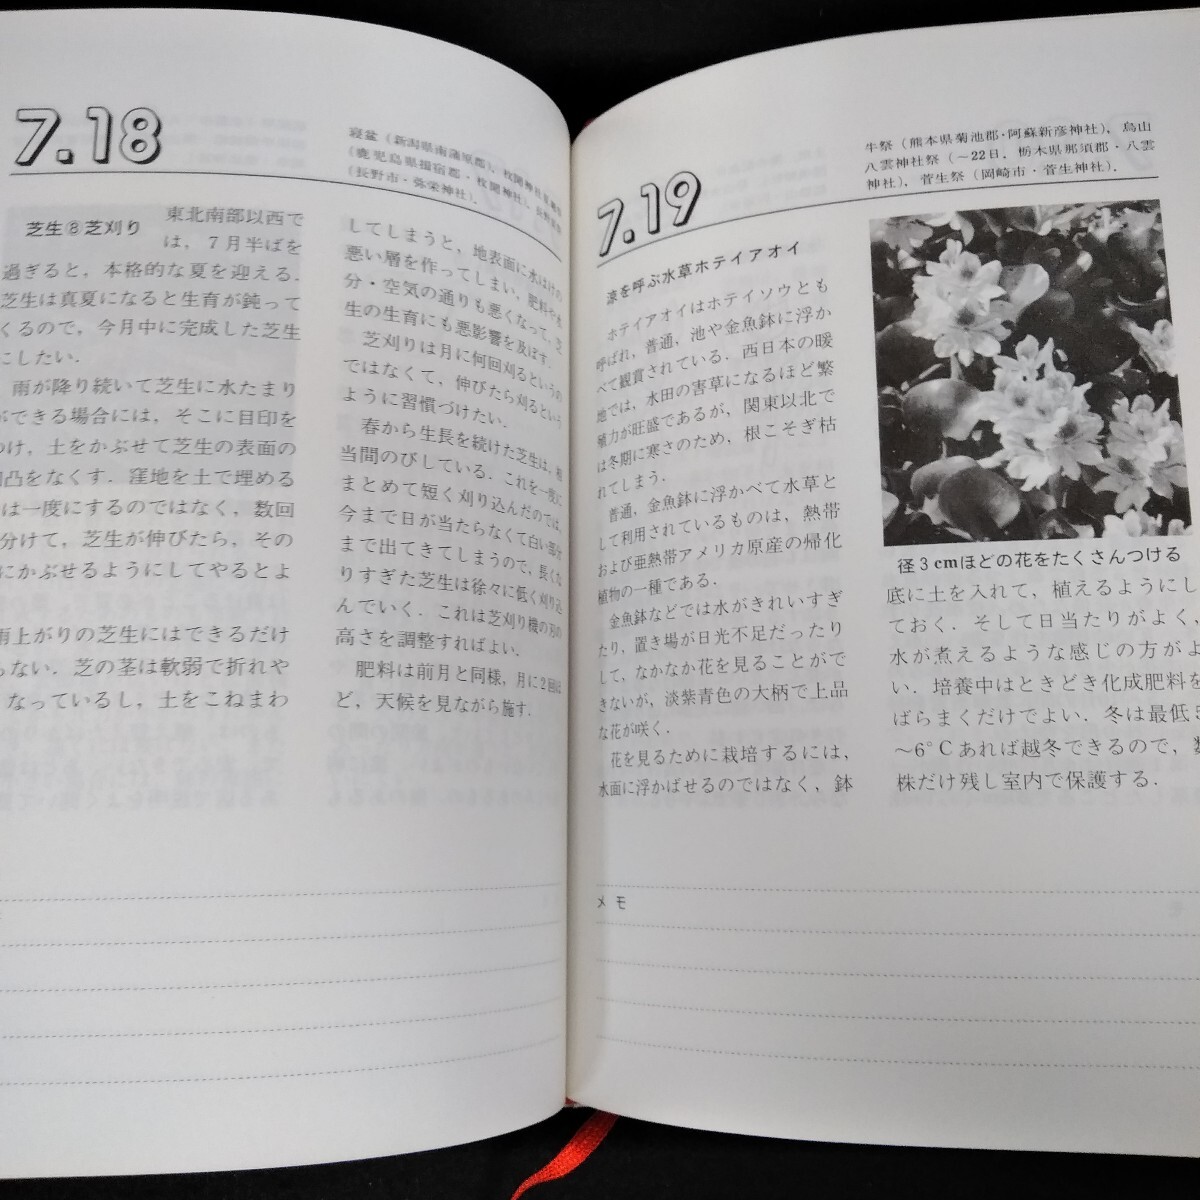 7.18
寝盆（新潟県南蒲原郡），枚聞神社
（鹿児島県揖宿郡・枚聞神社），
（長野市・弥栄神社）．
芝生⑧芝刈り
東北南部以西で
は，７月半ばを
過ぎると，本格的な夏を迎える．
芝生は真夏になると生育が鈍って
くるので，今月中に完成した芝生
にしたい．
雨が降り続いて芝生に水たまり
ができる場合には，そこに目印を
つけ，土をかぶせて芝生の表面の
凹凸をなくす．窪地を土で埋める
は一度にするのではなく，数回
分けて，芝生が伸びたら，その
にかぶせるようにしてやるとよ
雨上がりの芝生にはできるだけ
らない．芝の茎は軟弱で折れや
なっているし，土をこねまわ
してしまうと，地表面に水はけの
悪い層を作ってしまい，肥料や水
分・空気の通りも悪くなって，芝
生の生育にも悪影響を及ぼす．
芝刈りは月に何回刈るというの
ではなくて，伸びたら刈るという
ように習慣づけたい．
春から生長を続けた芝生は，相
当間のびしている．これを一度に
まとめて短く刈り込んだのでは，
今まで日が当たらなくて白い部分
まで出てきてしまうので，長くな
りすぎた芝生は徐々に低く刈り込
んでいく．これは芝刈り機の刃の
高さを調整すればよい．
肥料は前月と同様，月に２回ほ
ど，天候を見ながら施す．
7.19
牛祭（熊本県菊池郡・阿蘇新彦神社），烏山
八雲神社祭（～22日．栃木県那須郡・八雲
神社），菅生祭（岡崎市・菅生神社）．
涼を呼ぶ水草ホテイアオイ
ホテイアオイはホテイソウとも
呼ばれ，普通，池や金魚鉢に浮か
べて観賞されている．西日本の暖
地では，水田の害草になるほど繁
殖力が旺盛であるが，関東以北で
は冬期に寒さのため，根こそぎ枯
れてしまう．
普通，金魚鉢に浮かべて水草と
して利用されているものは，熱帯
および亜熱帯アメリカ原産の帰化
植物の一種である．
金魚鉢などでは水がきれいすぎ
たり，置き場が日光不足だったり
して，なかなか花を見ることがで
きないが，淡紫青色の大柄で上品
な花が咲く．
花を見るために栽培するには，
水面に浮かばせるのではなく，鉢
径３cmほどの花をたくさんつける
底に土を入れて，植えるようにし
ておく．そして日当たりがよく，
水が煮えるような感じの方がよ
い．培養中はときどき化成肥料を
ばらまくだけでよい．冬は最低５
～６℃あれば越冬できるので，数
株だけ残し室内で保護する．
メモ